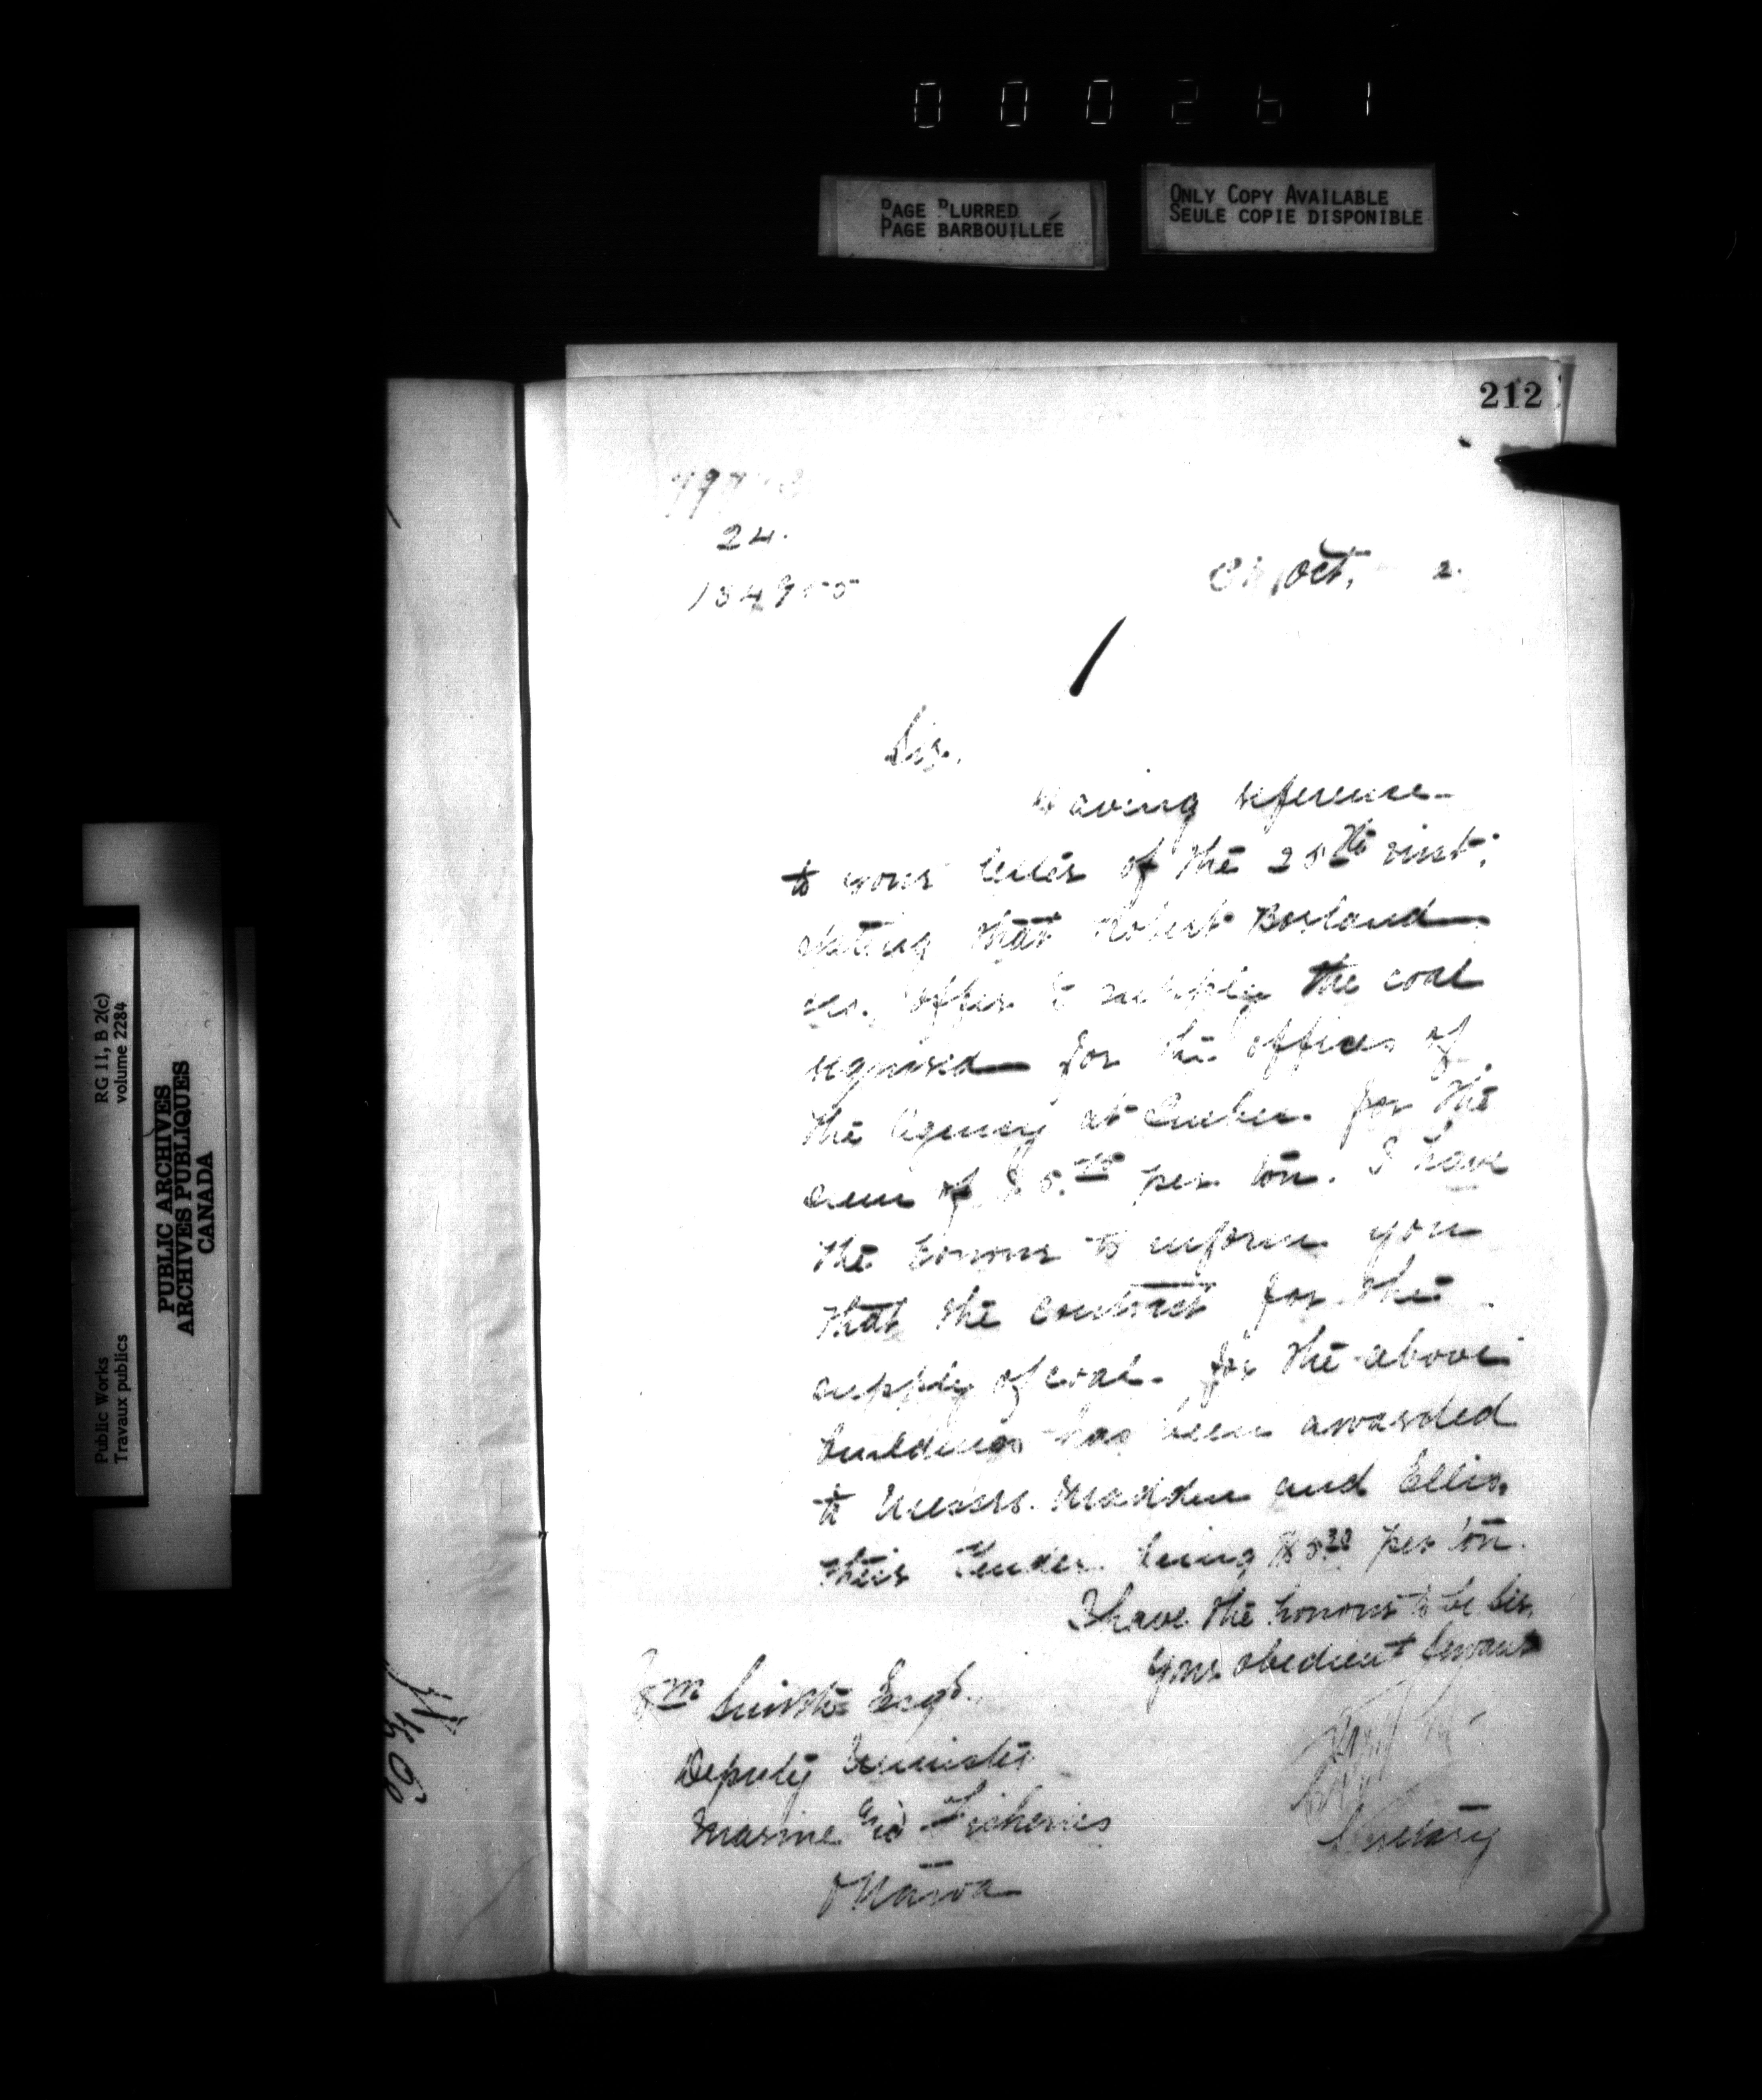 000261
PAGE BLURRED
PAGE BARBOUILLÉE
ONLY COPY AVAILABLE
SEULE COPIE DISPONIBLE
212
24.
Oct. 2.
Sir,
Having reference
to your letter of the 25th inst.
stating that Robert Borland
offers to supply the coal
required for the offices of
the Agency at Quebec for the
sum of $5. per ton. I have
the honour to inform you
that the contract for the
supply of coal for the above
buildings has been awarded
to Messrs. Madden and Ellis,
their tender being $5.30 per ton.
I have the honour to be Sir,
Your obedient Servant
Wm Smith Esqr.
Deputy Minister
Marine and Fisheries
Ottawa
Secretary
Public Works
Travaux publics
RG 11, B 2(c)
volume 2284
PUBLIC ARCHIVES
ARCHIVES PUBLIQUES
CANADA